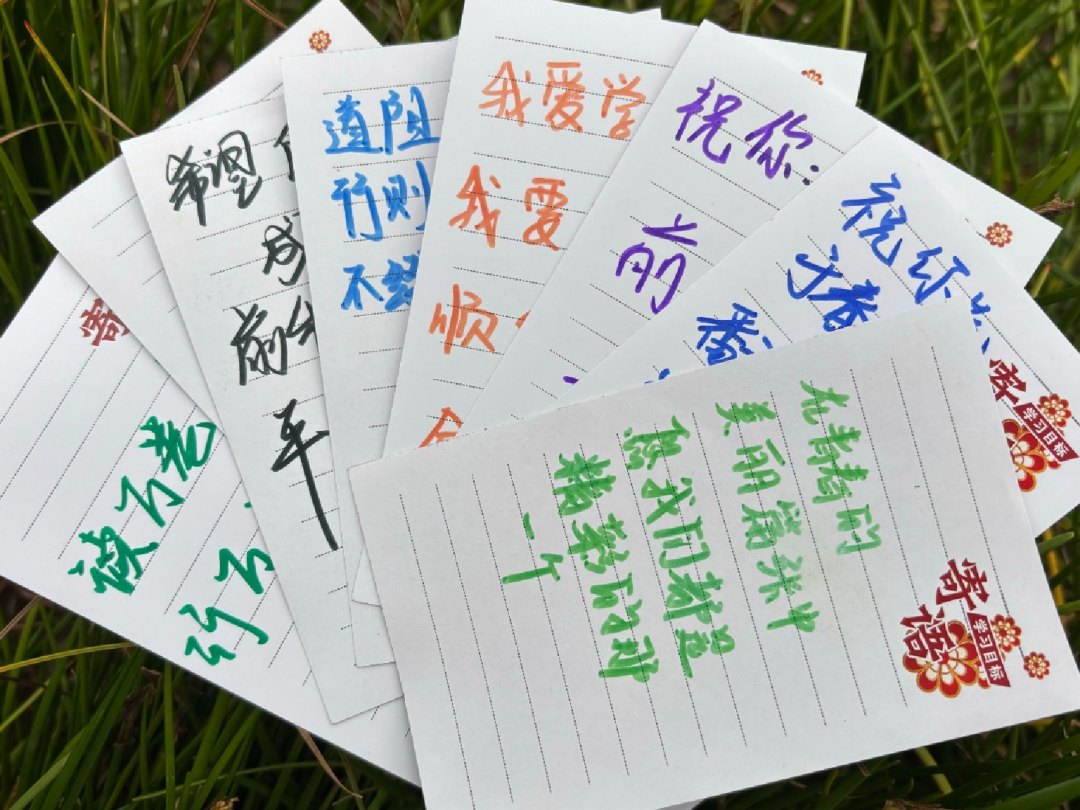 寄
读万卷
行万
希望
成
前
平
道阻
行则
不经
我爱学
我爱
顺
祝你:
前
祝你
青春
翻
学习目标
在青春的
美丽篇张中
愿我们都是
精彩的那
一个
寄语
学习目标